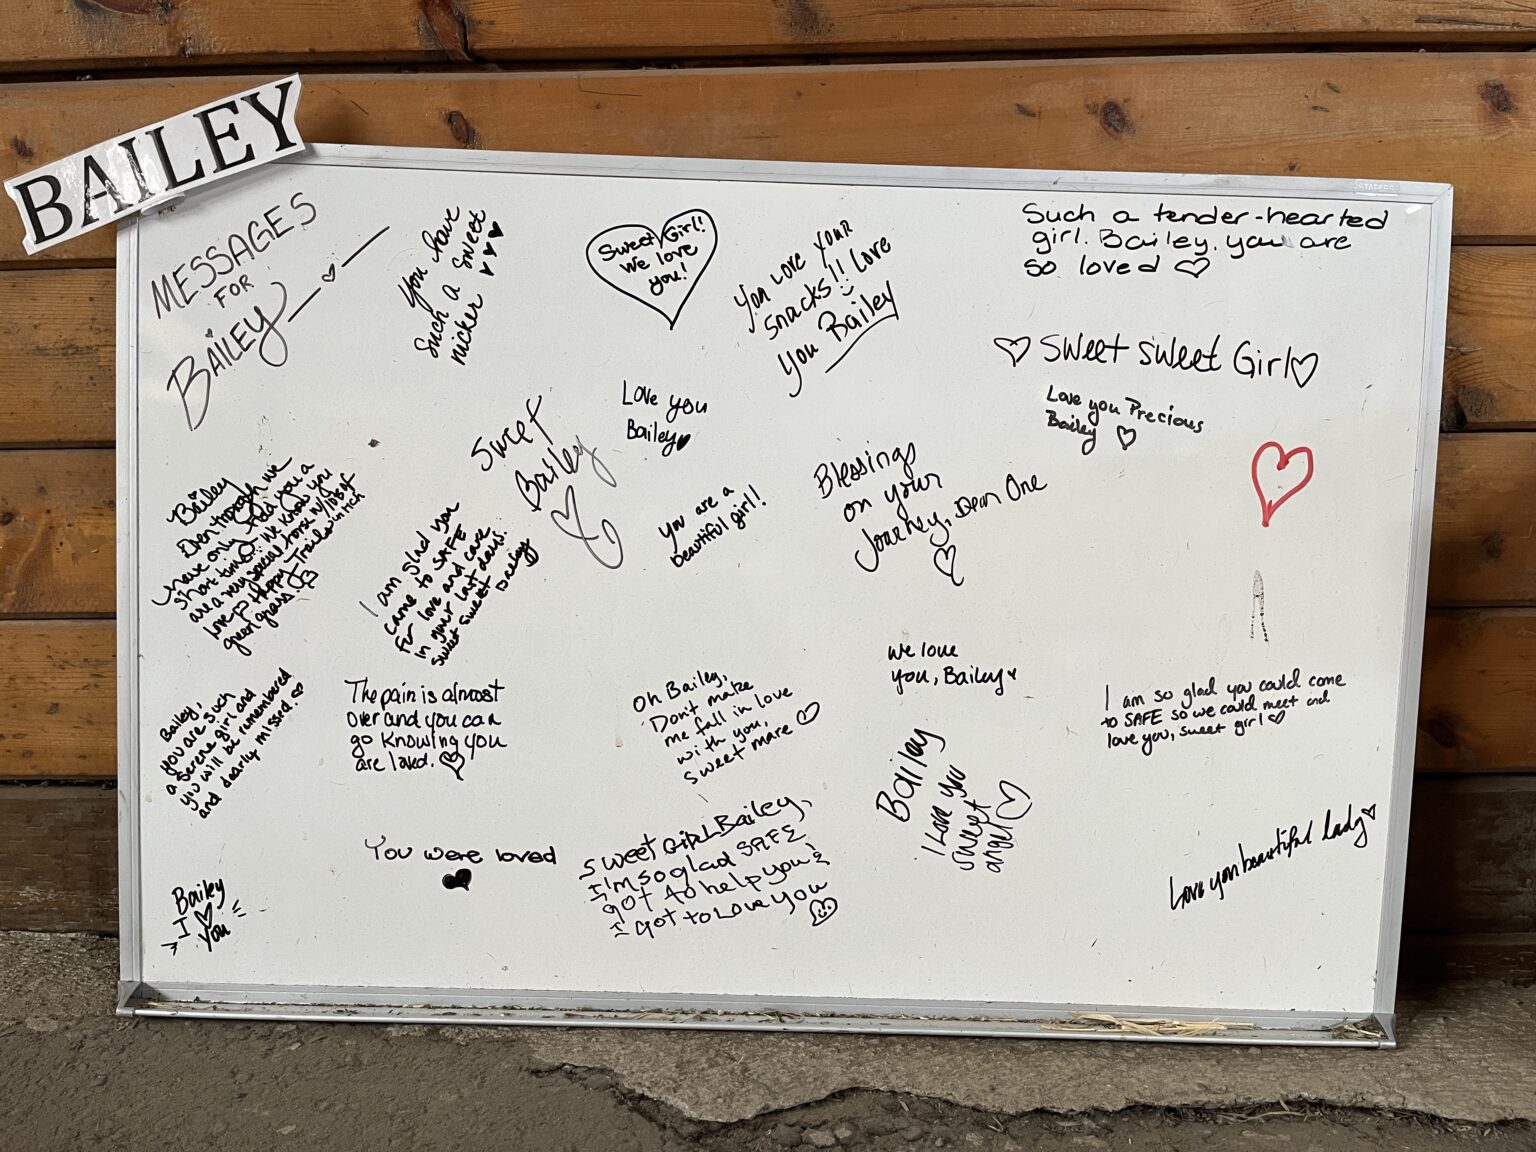 BAILEY
MESSAGES
FOR
BAILEY
You have
such a sweet
nicker
Sweet Girl!
We love
you!
You love your
snacks!! Love
you Bailey
Such a tender-hearted
girl. Bailey, you are
so loved
STAPLES
Sweet sweet Girl
Love you Precious
Bailey
Love you
Bailey
Sweet
Bailey
Blessings
on your
Journey, Dear One
you are a
beautiful girl!
Bailey
Even though we
have only had you a
short time... we know you
are a very special horse w/ lots of
love Happy Trails in rich
green grass.
I am glad you
came to SAFE
for love and care
in your last days.
sweet sweet Bailey
Bailey,
you are such
a serene girl and
you will be remembered
and dearly missed.
The pain is almost
over and you can
go knowing you
are loved.
Oh Bailey,
Don't make
me fall in love
with you,
sweet mare
We love
you, Bailey
I am so glad you could come
to SAFE so we could meet and
love you, sweet girl
Bailey
I Love you
sweet
angel
You were loved
Sweet Girl Bailey,
I'm so glad SAFE
got to help you &
I got to Love you
Bailey
I
you
Love you beautiful lady